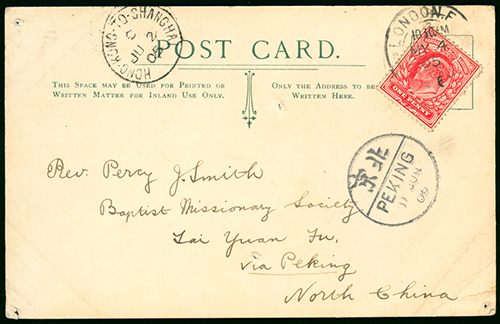 HONG-KONG-TO-SHANGHAI
C
JU 2
06
POST CARD.
LONDON.F.
10.10.AM
MY 4
6
ONE PENNY
THIS SPACE MAY BE USED FOR PRINTED OR
WRITTEN MATTER FOR INLAND USE ONLY.
ONLY THE ADDRESS TO BE
WRITTEN HERE.
北京
PEKING
11 JUN
06
Rev. Percy J. Smith
Baptist Missionary Society
Tai Yuan Fu.
via Peking
North China